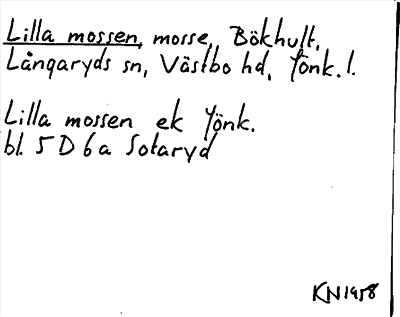 Lilla mossen, mosse, Bökhult,
Långaryds sn, Västbo hd, Jönk. l.
Lilla mossen ek Jönk.
bl. 5 D 6 a Sotaryd
KN 1958